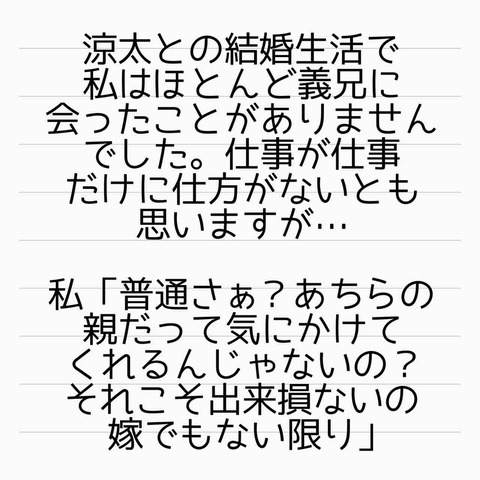 涼太との結婚生活で
私はほとんど義兄に
会ったことがありません
でした。仕事が仕事
だけに仕方がないとも
思いますが…
私「普通さぁ？あちらの
親だって気にかけて
くれるんじゃないの？
それこそ出来損ないの
嫁でもない限り」